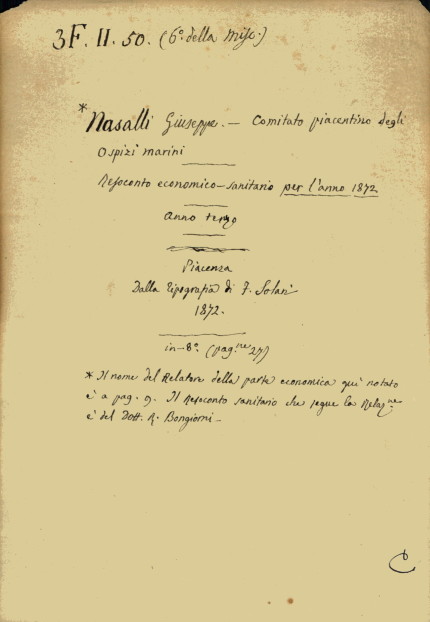 3F. II. 50. (6° della Misc.)
* Nasalli Giuseppe. — Comitato piacentino degli
Ospizi marini
Resoconto economico-sanitario per l'anno 1872
Anno terzo
Piacenza
Dalla Tipografia di F. Solari
1872.
in-8° (pag.ne 27)
* Il nome del Relatore della parte economica quì notato
è a pag. 9. Il Resoconto sanitario che segue la Relaz.ne
è del Dott. R. Bongiorni —
C